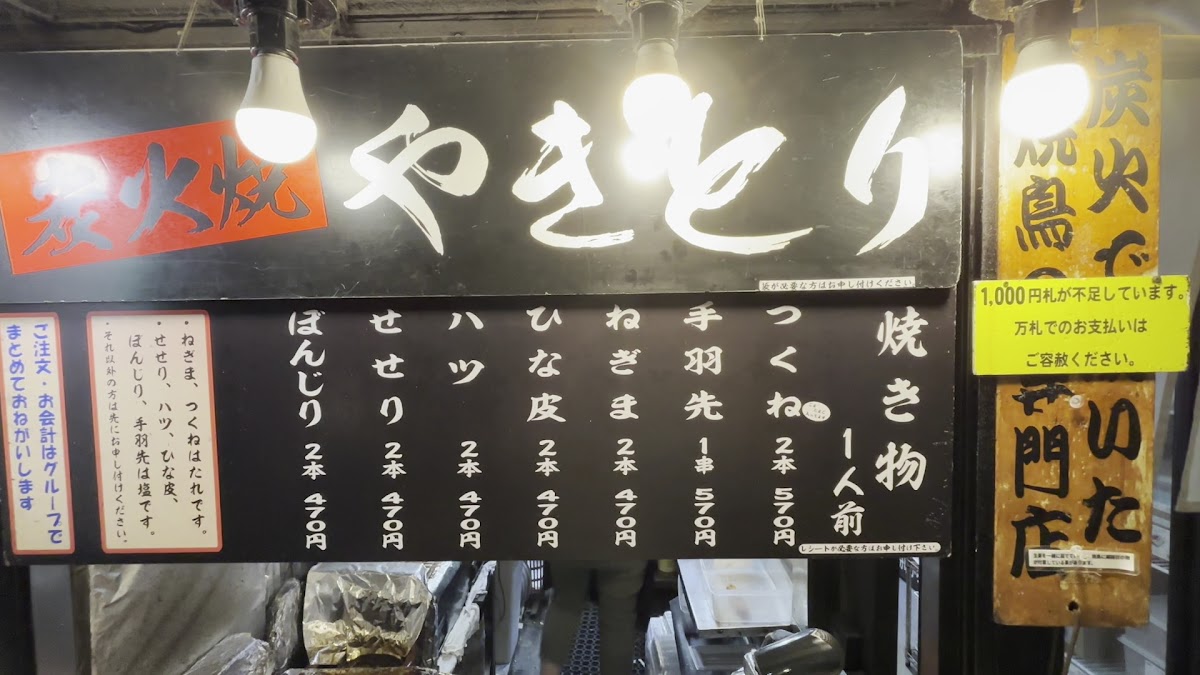 炭火焼
やきとり
袋が必要な方はお申し付けください
焼き物
1人前
つくね 2本 570円
手羽先 1串 570円
ねぎま 2本 470円
ひな皮 2本 470円
ハツ 2本 470円
せせり 2本 470円
ぼんじり 2本 470円
レシートが必要な方はお申し付け下さい
・ねぎま、つくねはたれです。
・せせり、ハツ、ひな皮、
ぼんじり、手羽先は塩です。
・それ以外の方は先にお申し付けください。
ご注文・お会計はグループで
まとめておねがいします
炭火で
いた
焼鳥の
専門店
1,000円札が不足しています。
万札でのお支払いは
ご容赦ください。